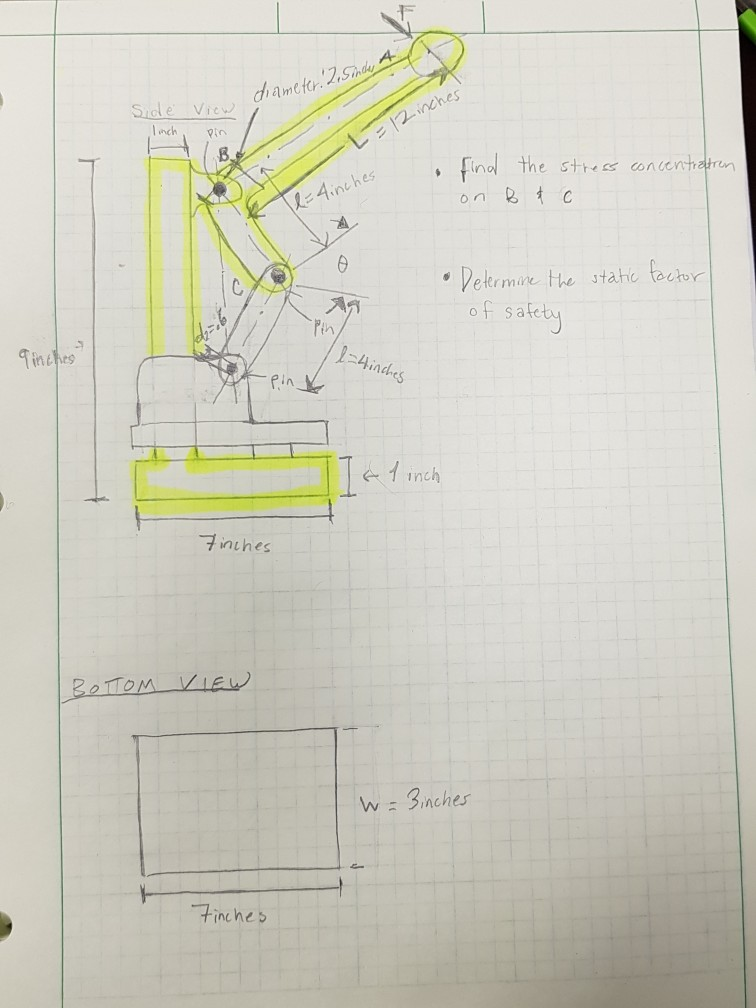 F
A
diameter: 2.5inches
Side View
1inch
pin
B
L = 12 inches
l = 4inches
• find the stress concentration
on B & C
θ
C
• Determine the static factor
of safety
pin
9inches
l=4inches
pin
← 1 inch
7inches
BOTTOM VIEW
W = 3inches
7inches